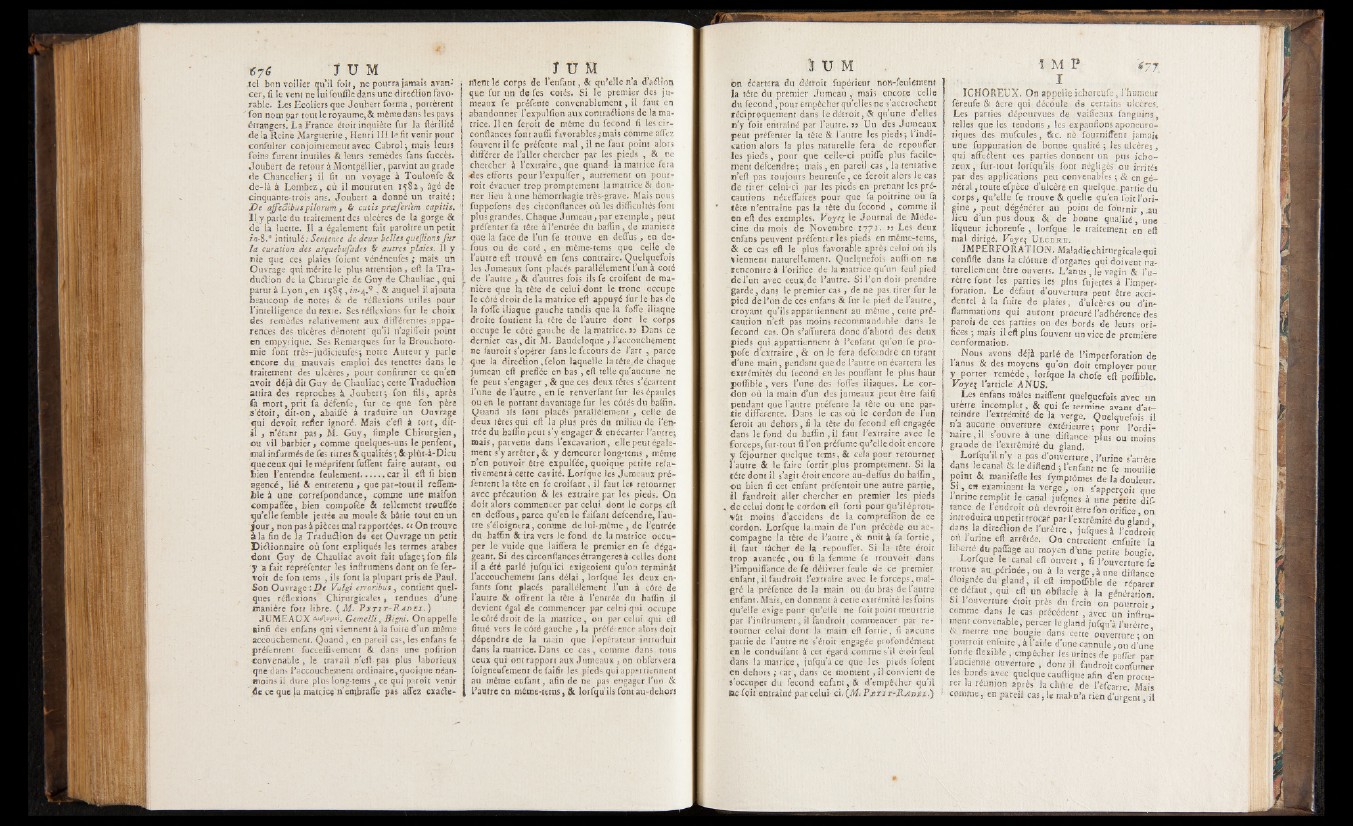 676 JUM
tel bon voilier qu'il soit, ne pourra jamais avan-
cer, si le vent ne lui souffle dans une direction favo-
rable. Les Ecoliers que Joubert forma, portèrent
son nom par tout le royaume, & même dans les pays
étrangers. La France étoit inquiète sur la stérilité
de la Reine Marguerite, Henri III le fit venir pour
consulter conjointement avec Cabrol; mais leurs
soins furent inutiles & leurs remèdes sans succès.
Joubert de retour à Montpellier, parvint au grade
de Chancelier; il fit un voyage à Toulouse &
de-là à Lombez, où il mourut en 1582, âgé de
cinquante-trois ans. Joubert a donné un traité:
De affectibus pilorum, & cutis præsertim capitis.
Il y parle du traitement des ulcères de la gorge &
de la luette. Il a également fait paroître un petit
in-8.° intitulé: Sentence de deux belles questions sur
la curation des arquebusades & autres plaies. Il y
nie que ces plaies soient vénéneuses; mais un
Ouvrage qui mérite le plus attention, est la Tra-
duction de la Chirurgie de Guy de Chauliac, qui
parut à Lyon, en 1585, in-4.°, & auquel il ajouta
beaucoup de notes & de réflexions utiles pour
l'intelligence du texte. Ses réflexions sur le choix
des remèdes relativement aux différentes appa-
rences des ulcères dénotent qu'il n'agissoit point
en empyrique. Ses Remarques sur la Brouchoto-
mie sont très-judicieuses; notre Auteur y parle
encore du mauvais emploi des tenettes dans le
traitement des ulcères, pour confirmer ce qu'en
avoit déjà dit Guy de Chauliac; cette Traduction
attira des reproches à Joubert; son fils, après
sa mort, prit sa défense, sur ce que son père
s'étoit, dit-on, abaissé à traduire un Ouvrage
qui devoit rester ignoré. Mais c'est à tort, dit-
il, n'étant pas, M. Guy, simple Chirurgien,
ou vil barbier, comme quelques-uns le pensent,
mal informés de ses titres & qualités; & plût-à-Dieu
que ceux qui le méprisent sussent faire autant, ou
bien l'entendre seulement..... car il est si bien
agencé, lié & entretenu, que par-tout il ressem-
ble à une correspondance, comme une maison
compassée, bien composée & tellement troussée
qu'elle semble jettée au moule & bâtie tout en un
jour, non pas à pièces mal rapportées. « On trouve
à la fin de la Traduction de cet Ouvrage un petit
Dictionnaire où sont expliqués les termes arabes
dont Guy de Chauliac avoit fait usage; son fils
y a fait représenter les instrumens dont on se ser-
voit de son tems, ils sont la plupart pris de Paul.
Son Ouvrage: De Vulgi erroribus, contient quel-
ques réflexions Chirurgicales, rendues d'une
manière fort libre. (M. PETIT-RADEL.)
JUMEAUX Gemelli, Bigni. On appelle
ainsi des enfans qui viennent à la suite d'un même
accouchement. Quand, en pareil cas, les enfans se
présentent successivement & dans une position
convenable, le travail n'est pas plus laborieux
que dans l'accouchement ordinaire, quoique néan-
moins il dure plus long-tems, ce qui paroît venir
de ce que la matrice n'embrasse pas assez exacte-
JUM
ment le corps de l'enfant, & qu'elle n'a d'action
que sur un de ses cotés. Si le premier des ju-
meaux se présente convenablement, il faut en
abandonner l'expulsion aux contractions de la ma-
trice. Il en seroit de même du second si les cir-
constances sont aussi favorables; mais comme assez
souvent il se présente mal, il ne faut point alors
différer de l'aller chercher par les pieds, & ne
chercher à l'extraire, que quand la matrice fera
des efforts pour l'expulser, autrement on pour-
roit évacuer trop promptement la matrice & don-
ner lieu à une hémorrhagie très-grave. Mais nous
supposons des circonstances où les difficultés sont
plus grandes. Chaque Jumeau, par exemple, peut
présenter sa tête à l'entrée du bassin, de manière
que la face de l'un se trouve en dessus, en des-
sous ou de coté, en même-tems que celle de
l'autre est trouvé en sens contraire. Quelquefois
les Jumeaux sont placés parallélement l'un à coté
de l'autre, & d'autres fois ils se croisent de ma-
nière que la tête de celui dont le tronc occupe
le côté droit de la matrice est appuyé sur le bas de
la fosse iliaque gauche tandis que la fosse iliaque
droite soutient la tête de l'autre dont le corps
occupe le côté gauche de la matrice. » Dans ce
dernier cas, dit M. Baudeloque, l'accouchement
ne sauroit s'opérer sans le secours de l'art, parce
que la direction, selon laquelle la tête de chaque
jumeau est pressée en bas, est telle qu'aucune ne
se peut s'engager, & que ces deux têtes s'écartent
l'une de l'autre, en se renversant sur les épaules
ou en le portant davantage sur les côtés du bassin.
Quand ils sont placés parallélement, celle de
deux têtes qui est la plus près du milieu de l'en-
trée du bassin peut s'y engager & en écarter l'autre;
mais, parvenu dans l'excavation, elle peut égale-
ment s'y arrêter, & y demeurer long-tems, même
n'en pouvoir être expulsée, quoique petite rela-
tivement à cette cavité. Lorsque les Jumeaux pré-
sentent la tête en se croisant, il faut les retourner
avec précaution & les extraire par les pieds. On
doit alors commencer par celui dont le corps est
en dessous, parce qu'en le faisant descendre, l'au-
tre s'éloignera, comme de lui-même, de l'entrée
du bassin & ira vers le fond de la matrice occu-
per le vuide que laissera le premier en se déga-
geant. Si des circonstances étrangeres à celles dont
il a été parlé jusqu'ici exigeoient qu'on terminât
l'accouchement sans délai, lorsque les deux en-
fants sont placés parallélement l'un à côté de
l'autre & offrent la tête à l'entrée du bassin il
devient égal de commencer par celui qui occupe
le côté droit de la matrice, ou par celui qui est
situé vers le côté gauche, la préférence alors doit
dépendre de la main que l'opérateur introduit
dans la matrice. Dans ce cas, comme dans tous
ceux qui ont rapport aux Jumeaux, on observera
soigneusement de saisir les pieds qui appartiennent
au même enfant, afin de ne pas engager l'un &
l'autre en même-tems, & lorsqu'ils sont au-dehors
JUM
on écartera du détroit supérieur non-seulement
la tête du premier Jumeau, mais encore celle
du second, pour empêcher qu'elles ne s'accrochent
réciproquement dans le détroit, & qu'une d'elles
n'y soit entraîné par l'autre. » Un des Jumeaux
peut présenter la tête & l'autre les pieds; l'indi-
cation alors la plus naturelle sera de repousser
les pieds, pour que celle-ci puisse plus facile-
ment descendre; mais, en pareil cas, la tentative
n'est pas toujours heureuse, ce seroit alors le cas
de tirer celui-ci par les pieds en prenant les pré-
cautions nécessaires pour que sa poitrine ou sa
tête n'entraîne pas la tête du second, comme il
en est des exemples. Voyez le Journal de Méde-
cine du mois de Novembre 1771. » Les deux
enfans peuvent présenter les pieds en même-tems,
& ce cas est le plus favorable après celui où ils
viennent naturellement. Quelquefois aussi on ne
rencontre à l'orifice de la matrice qu'un seul pied
de l'un avec ceux de l'autre. Si l'on doit prendre
garde, dans le premier cas, de ne pas tirer sur le
pied de l'un de ces enfans & sur le pied de l'autre,
croyant qu'ils appartiennent au même, cette pré-
caution n'est pas moins recommandable dans le
second cas. On s'assurera donc d'abord des deux
pieds qui appartiennent à l'enfant qu'on se pro-
pose d'extraire, & on le fera descendre en tirant
d'une main, pendant que de l'autre on écartera les
extrémités du second en les poussant le plus haut
possible, vers l'une des fosses iliaques. Le cor-
don où la main d'un des jumeaux peut être saisi
pendant que l'autre présente la tête ou une par-
tie différente. Dans le cas où le cordon de l'un
seroit au dehors, si la tête du second est engagée
dans le fond du bassin, il faut l'extraire avec le
forceps, sur-tout si l'on présume qu'elle doit encore
y séjourner quelque tems, & cela pour retourner
l'autre & le faire sortir plus promptement. Si la
tête dont il s'agit étoit encore au-dessus du bassin,
ou bien si cet enfant présentoit une autre partie,
il faudroit aller chercher en premier les pieds
de celui dont le cordon est sorti pour qu'il éprou-
vât moins d'accidens de la compression de ce
cordon. Lorsque la main de l'un précède ou ac-
compagne la tête de l'autre, & nuit à sa sortie,
il faut tâcher de la repousser. Si la tête étoit
trop avancée, ou si la femme se trouvoit dans
l'impuissance de se délivrer seule de ce premier
enfant, il faudroit l'extraire avec le forceps, mal-
gré la présence de la main ou du bras de l'autre
enfant. Mais, en donnant à cette extrémité les soins
qu'elle exige pour qu'elle ne soit point meurtrie
par l'instrument, il faudroit commencer par re-
tourner celui dont la main est sortie, si aucune
partie de l'autre ne s'étoit engagée profondément
en le conduisant à cet égard comme s'il étoit seul
dans la matrice, jusqu'à ce que les pieds soient
en dehors; car, dans ce moment, il convient de
s'occuper du second enfant, & d'empêcher qu'il
ne soit entraîné par celui-ci. (M. PETIT-RADEL.)
IMP 677
I
ICHOREUX. On appelle ichoreuse, l'humeur
séreuse & âcre qui découle de certains ulcères.
Les parties dépourvues de vaisseaux sanguins,
telles que les tendons, les expansions aponeuro-
tiques des muscules, &c. ne fournissent jamais
une suppuration de bonne qualité; les ulcères,
qui affectent ces parties donnent un pus icho-
reux, sur-tout lorsqu'ils sont négligés ou irrités
par des applications peu convenables; & en gé-
néral, toute espèce d'ulcère en quelque partie du
corps, qu'elle se trouve & quelle qu'en soit l'ori-
gine, peut dégénérer au point de fournir, au
lieu d'un pus doux & de bonne qualité, une
liqueur ichoreuse, lorsque le traitement en est
mal dirigé. Voyez ULCERE.
IMPERFORATION. Maladie chirurgicale qui
consiste dans la clôture d'organes qui doivent na-
turellement être ouverts. L'anus, le vagin & l'u-
rètre sont les parties les plus sujettes à l'imper-
foration. Le défaut d'ouverture peut être acci-
dentel à la suite de plaies, d'ulcères ou d'in-
flammations qui auront procuré l'adhérence des
parois de ces parties ou des bords de leurs ori-
fices; mais il est plus souvent un vice de première
conformation.
Nous avons déjà parlé de l'imperforation de
l'anus & des moyens qu'on doit employer pour
y porter remède, lorsque la chose est possible.
Voyez l'article ANUS.
Les enfans mâles naissent quelquefois avec un
urètre incomplut, & qui se termine avant d'at-
teindre l'extrémité de la verge. Quelquefois il
n'a aucune ouverture extérieure; pour l'ordi-
naire, il s'ouvre à une distance plus ou moins
grande de l'extrémité du gland.
Lorsqu'il n'y a pas d'ouverture, l'urine s'arrête
dans le canal & le distend; l'enfant ne se mouille
point & manifeste les symptômes de la douleur.
Si, en examinant la verge, on s'apperçoit que
l'urine remplit le canal jusques à une petite dis-
tance de l'endroit où devroit être son orifice, on
introduira un petit trocar par l'extrémité du gland,
dans la direction de l'urètre, jusques à l'endroit
où l'urine est arrêtée. On entretient ensuite la
liberté du passage au moyen d'une petite bougie.
Lorsque le canal est ouvert, si l'ouverture se
trouve au périnée, ou à la verge, à une distance
éloignée du gland, il est impossible de réparer
ce défaut, qui est un obstacle à la génération.
Si l'ouverture étoit près du frein on pourroit,
comme dans le cas précédent, avec un instru-
ment convenable, percer le gland jusqu'à l'urètre,
& mettre une bougie dans cette ouverture; on
pourroit ensuite, à l'aide d'une cannule, ou d'une
sonde flexible, empêcher les urines de passer par
l'ancienne ouverture, dont il faudroit consumer
les bords avec quelque caustique afin d'en procu-
rer la réunion après la chûte de l'escarre. Mais
comme, en pareil cas, le mal n'a rien d'urgent, il